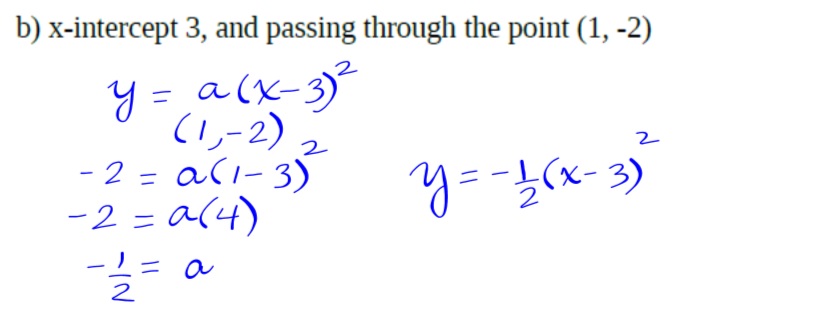 b) x-intercept 3, and passing through the point (1, -2)
y = a(x-3)²
(1,-2)
-2 = a(1-3)²
-2 = a(4)
-1/2 = a
y = -1/2(x-3)²